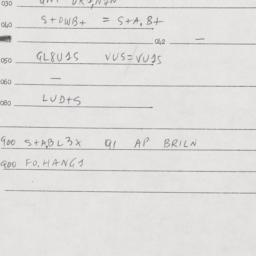 030
040 S+DWB+ = S+A,B+
042 —
050 GL8U1S VUS=VU1S
060 —
080 LUD+S
900 S+ABL3X 91 AP BRILN
900 FO,HANG1